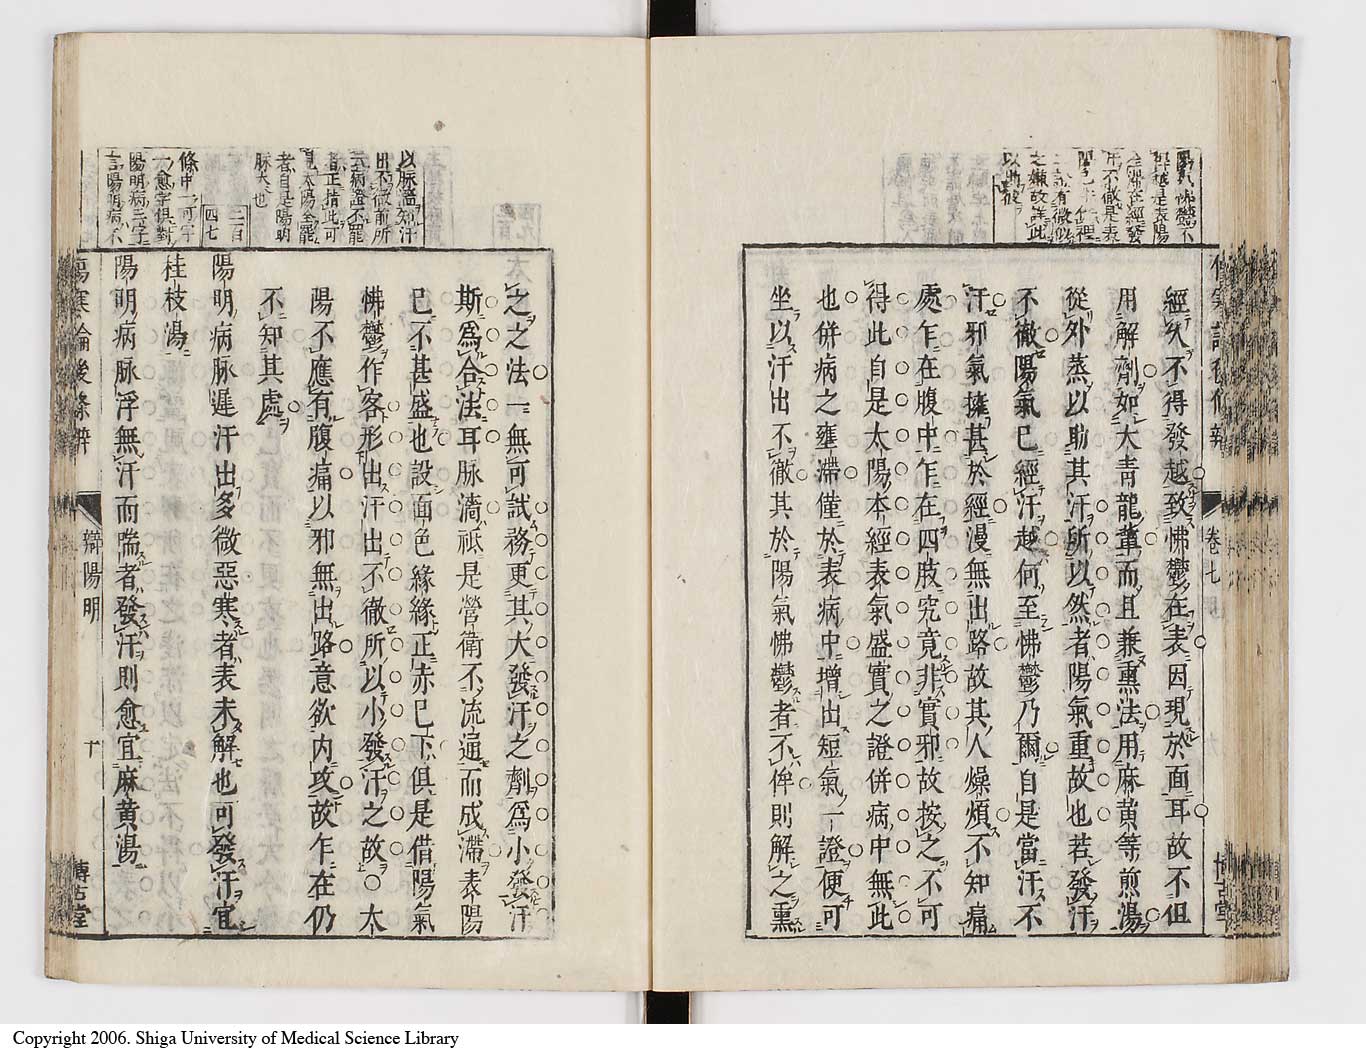 經久不得發越致怫鬱在表因現於面耳故不但
用解劑如大青龍輩而且兼熏法用麻黄等煎湯
從外蒸以助其汗所以然者陽氣重故也若發汗
不徹陽氣已經汗越何至怫鬱乃爾自是當汗不
汗邪氣擁甚於經漫無出路故其人燥煩不知痛
處乍在腹中乍在四肢究竟非實邪故按之不可
得此自是太陽本經表氣盛實之證併病中無此
也併病之壅滯僅於表病中增出短氣一證便可
坐以汗出不徹其於陽氣怫鬱者不侔則解之熏
卷七
之之法一無可試務更其大發汗之劑爲小發汗
斯爲合法耳脉濇祗是營衛不流通而成滯表陽
已不甚盛也設面色緣緣正赤已下俱是借陽氣
怫鬱作客形出汗出不徹所以小發汗之故○太
陽不應有腹痛以邪無出路意欲内攻故乍在仍
不知其處
陽明病脉遲汗出多微惡寒者表未解也可發汗宜
桂枝湯
陽明病脉浮無汗而喘者發汗則愈宜麻黄湯
以脉濇知汗
出不徹前所
云病證不罷
者正指此可
見太陽全罷
者自是陽明
脉大也
二百
四七
條中一可字
一愈字俱對
陽明病三字
言陽明病不
傷寒論後條辨
辯陽明
十
博古堂
Copyright 2006. Shiga University of Medical Science Library